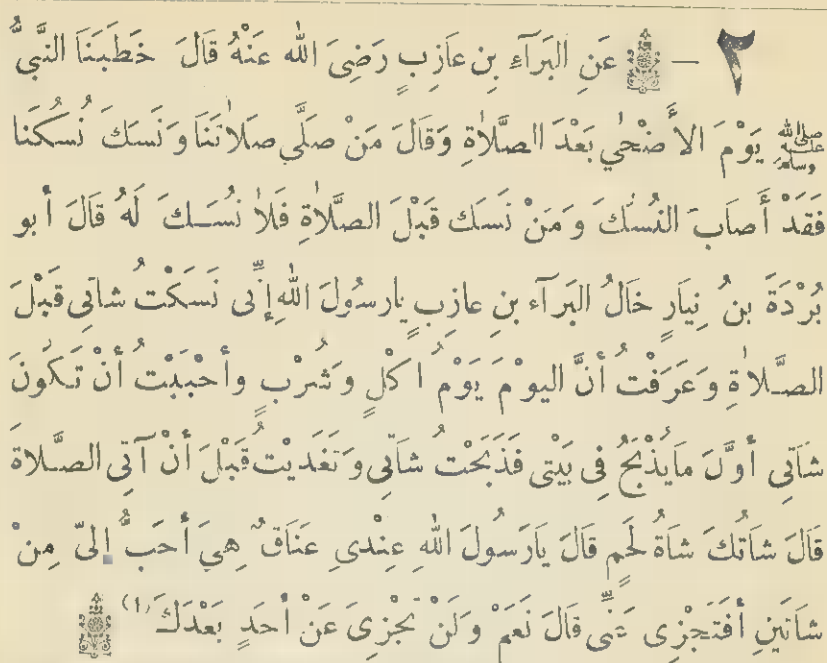 ٢ - عَنِ البَرَآءِ بنِ عَازِبٍ رَضِيَ اللهُ عَنْهُ قَالَ خَطَبَنَا النَّبِيُّ
ﷺ يَوْمَ الأَضْحٰي بَعْدَ الصَّلاٰةِ وَقَالَ مَنْ صَلَّي صَلاٰتَنَا وَنَسَكَ نُسُكَنا
فَقَدْ أَصابَ النُسُكَ وَمَنْ نَسَك قَبْلَ الصَّلاٰةِ فَلاٰ نُسُكَ لَهُ قالَ أبو
بُرْدَةَ بنُ نِيَارٍ خَالُ البَرآء بنِ عازِبٍ يارسُولَ اللهِ إنِّى نَسَكْتُ شاتِى قَبْلَ
الصَّلاٰةِ وَعَرَفْتُ أنَّ اليوْمَ يَوْمُ اكْلٍ وَشُرْبٍ وأحْبَبْتُ أنْ تَكُونَ
شَاتِى أوَّلَ مَايُذْبَحُ فِى بَيْتِى فَذَبَحْتُ شَاتِى وَتَغَدَيْتُ قَبْلَ أنْ آتِى الصَّلاةَ
قَالَ شاتُكَ شاةُ لَحمٍ قالَ يَارَسُولَ اللهِ عِنْدِى عَنَاقٌ هِيَ أحَبُّ إلىّ مِنْ
شاتَينِ أفَتَجْزِى عَنِّى قالَ نَعَمْ وَلَنْ تَجْزِىَ عَنْ أحَدٍ بَعْدَكَ (١)